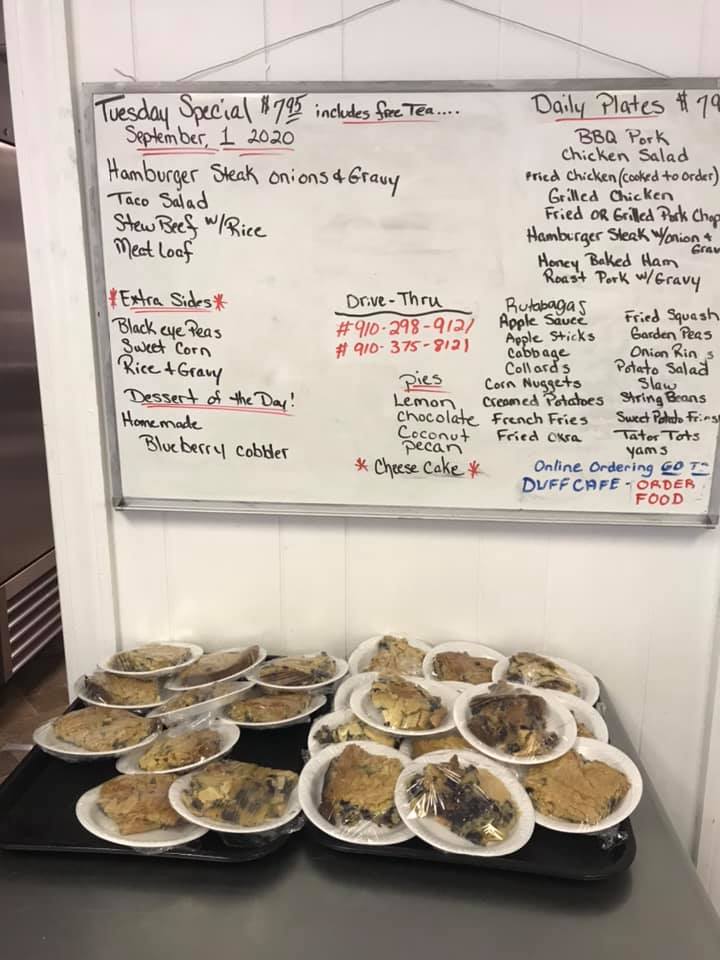 Tuesday Special $7.95 includes free Tea....
September, 1 2020
Hamburger Steak onions & Gravy
Taco Salad
Stew Beef w/Rice
Meat Loaf
*Extra Sides*
Black eye Peas
Sweet Corn
Rice & Gravy
Dessert of the Day!
Homemade
Blueberry cobbler
Drive-Thru
#910-298-9121
#910-375-8121
pies
Lemon
chocolate
Coconut
pecan
* Cheese Cake *
Daily Plates $79
BBQ Pork
Chicken Salad
Fried Chicken (cooked to order)
Grilled Chicken
Fried OR Grilled Pork Chop
Hamburger Steak w/onion &
Grav
Honey Baked Ham
Roast Pork w/Gravy
Rutabagas
Apple Sauce
Apple Sticks
Cabbage
Collards
Corn Nuggets
Creamed Potatoes
French Fries
Fried Okra
Fried Squash
Garden Peas
Onion Rin s
Potato Salad
Slaw
String Beans
Sweet Potato Fries
Tator Tots
yams
Online Ordering GO TO
DUFFCAFE - ORDER
FOOD